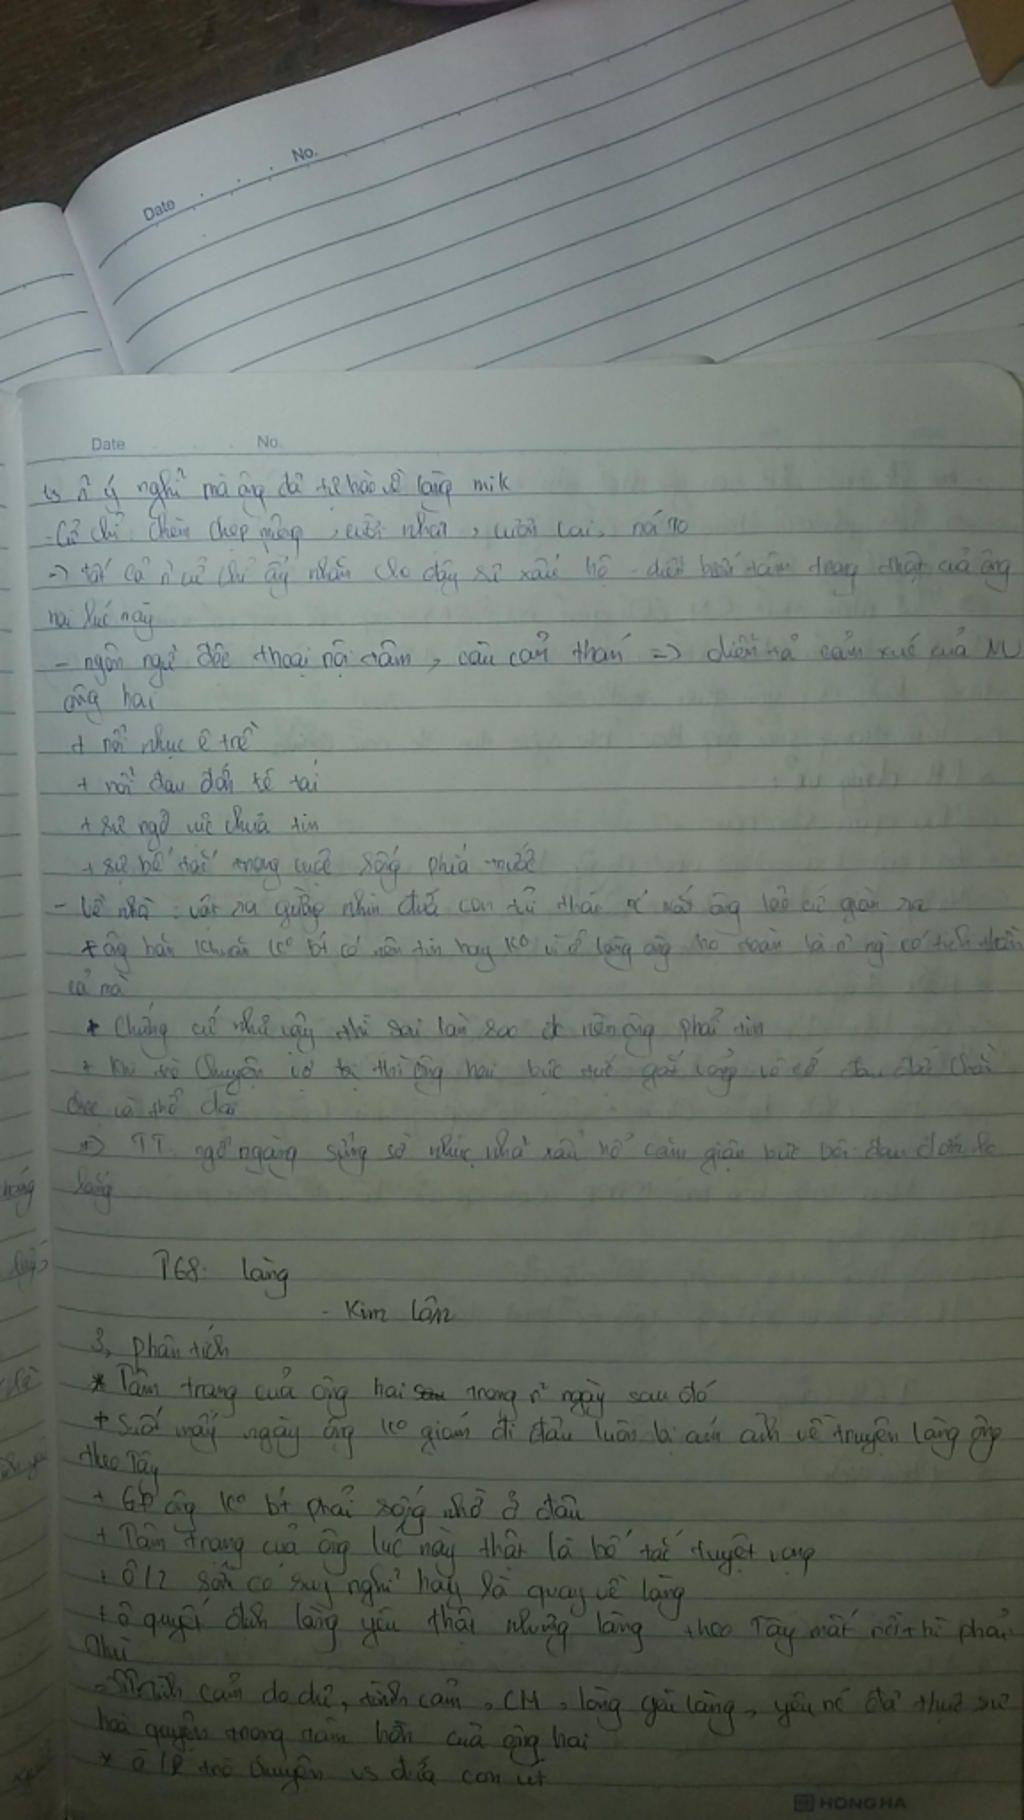 Date No.
Date No.
ý nghĩ mà ông đã tự hào về làng mik
- Cử chỉ: chèm chẹp miệng, cười nhạt, cười
=> tất cả cử chỉ ấy nhằm cho đấy sự xấu hổ tâm trạng thật của ông
hai lúc này
- ngôn ngữ độc thoại nội tâm, câu cảm thán => diễn tả cảm xúc của
ông hai
+ nỗi nhục ê trề
+ nỗi đau đớn tê tái
+ sự ngờ vực chưa tin
+ sự bế tắc trong cuộc sống phía trước
- Về nhà: vật ra giường nhìn đứa con tủi thân nước mắt ông lão cứ giàn ra
+ ông băn khoăn ko bt có nên tin hay ko vì ở làng ông toàn là ng có tinh thần
cả mà
+ Chứng cớ như vậy thì sai làm sao nên ông phải tin
+ Khi trò chuyện vợ thì ông hai bực tức gắt gỏng vô cớ đau đớn
và thở dài
=> TT ngỡ ngàng sững sờ nhục nhã xấu hổ căm giận bực bội đau đớn lo
lắng
T68: Làng
- Kim Lân
3, phân tích
* Tâm trạng của ông hai trong ngày sau đó
+ Suốt mấy ngày ông ko giám đi đâu luôn bị ám ảnh về truyện làng ông
theo Tây
+ GĐ ông ko bt phải sống nhờ ở đâu
+ Tâm trạng của ông lúc này thật là bế tắc tuyệt vọng
+ suy nghĩ hay là quay về làng
+ ô quyết định làng yêu thật nhưng làng theo Tây mất rồi thì phải
thù
cảm do dự, tình cảm, CM, lòng yêu làng, yêu nc đã thực sự
hoà quyện trong tâm hồn của ông hai
* trò chuyện vs đứa con út
HONG HA